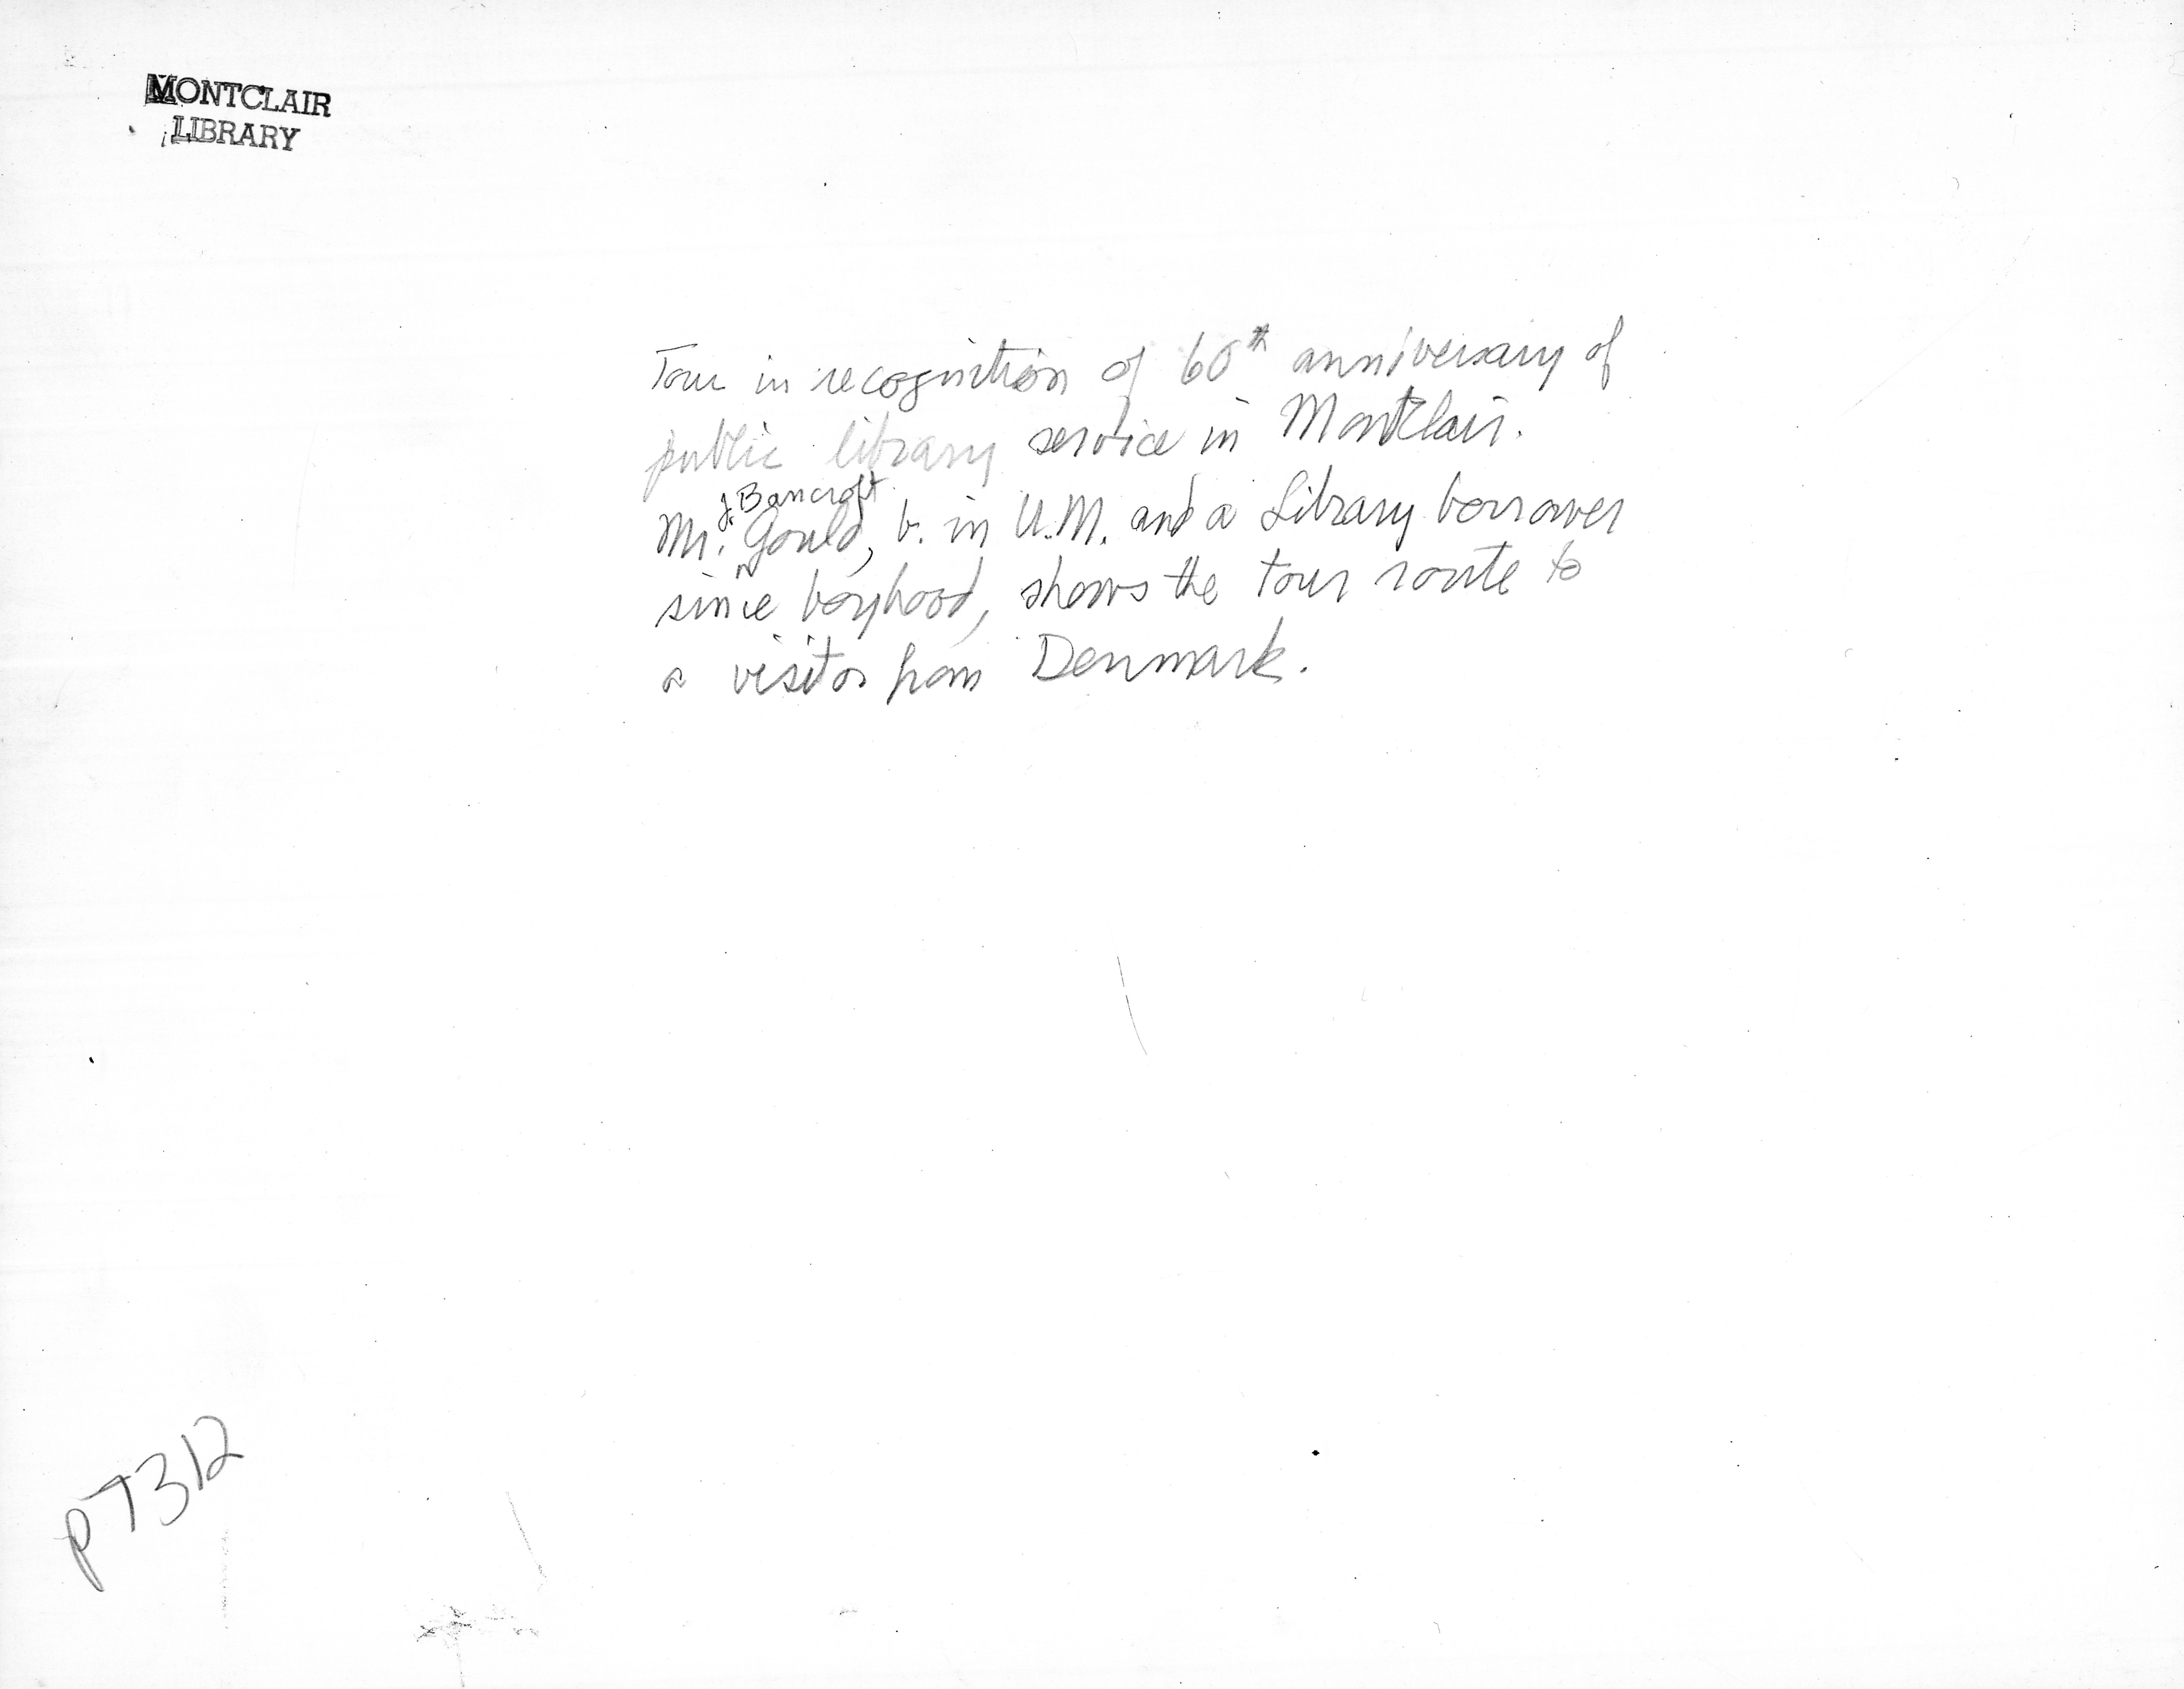 MONTCLAIR
LIBRARY
Tour in recognition of 60th anniversary of
public library service in Montclair.
J. Bancroft
Mr. Gould, b. in U.M. and a Library borrower
since boyhood, shows the tour route to
a visitor from Denmark.
p7312